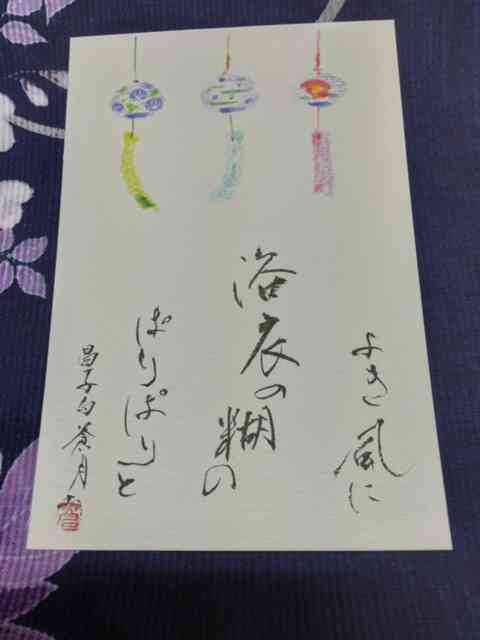 よき風に
浴衣の糊の
ぱりぱりと
昌子句 蒼月